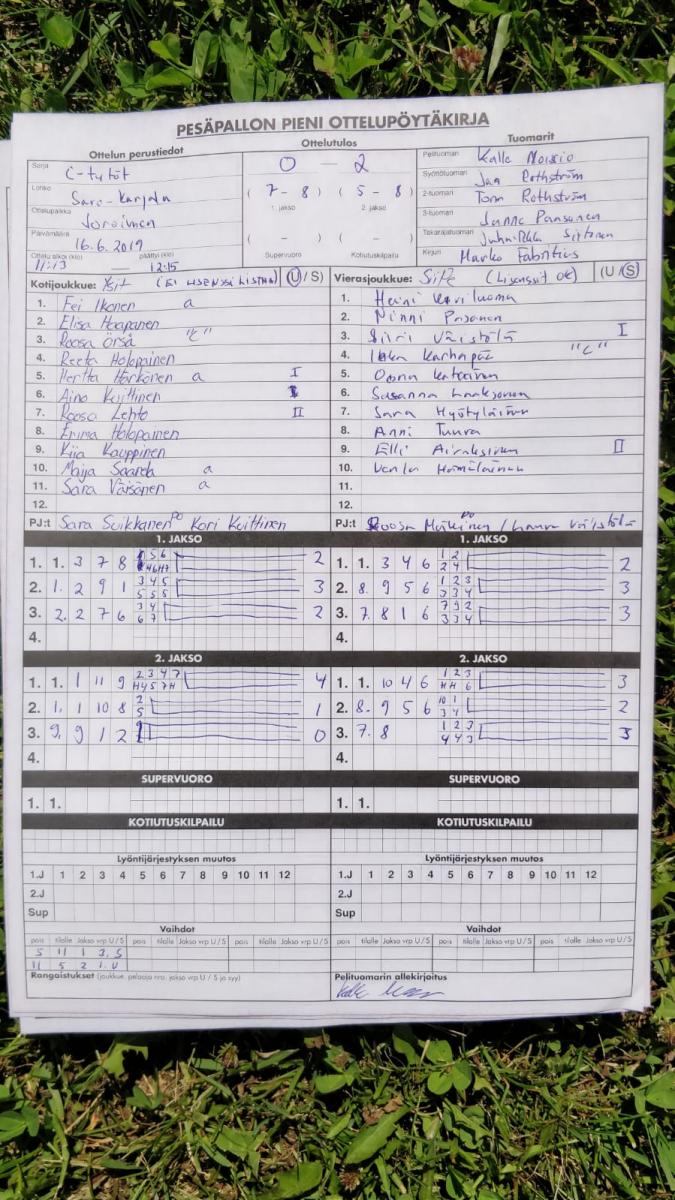 PESÄPALLON PIENI OTTELUPÖYTÄKIRJA
Ottelun perustiedot Ottelutulos Tuomarit
Sarja C-tytöt
Lohko Savo-Karjala
Ottelupaikka Joroinen
Päivämäärä 16.6.2019
Ottelu alkoi (klo) päättyi (klo)
11:13 — 12:15
0 – 2
( 7 – 8 ) ( 5 – 8 )
1. jakso 2. jakso
( – ) ( – )
Supervuoro Kotiutuskilpailu
Pelituomari Kalle Noisio
Syöttötuomari Jan Rothström
2-tuomari Tom Rothström
3-tuomari Janne Pansanen
Takarajatuomari
Kirjuri Marko Fabritius
Kotijoukkue: (U/S)
1. Fei Ikonen a
2. Elisa Haapanen
3. Roosa Örså "C"
4. Reeta Holopainen
5. Hertta Härkönen a I
6. Aino Kuittinen
7. Roosa Lehto II
8. Emma Holopainen
9. Kiia Kauppinen
10. Maija Saarela a
11. Sara Väisänen a
12.
PJ:t Sara Suikkanen PO Kori Kuittinen
Vierasjoukkue: SiiPe (Lisenssit ok) (U/S)
1. Heini Kariluoma
2. Minni Pasanen
3. Siiri Väistölä I
4. Karhapää "C"
5. Oona
6. Susanna Laaksonen
7. Sara Hyötyläinen
8. Anni Tuura
9. Elli Airaksinen II
10. Venla Hämäläinen
11.
12.
PJ:t Roosa Mäkinen PO / Laura Väistölä
1. JAKSO
1. 1. 3 7 8 2
2. 1. 2 9 1 3 4 5 5 5 5 3
3. 2. 2 7 6 3 4 6 7 2
4.
1. JAKSO
1. 1. 3 4 6 1 2 2 4 2
2. 8. 9 5 6 1 2 3 3 3 4 3
3. 7. 8 1 6 7 9 2 3 3 4 3
4.
2. JAKSO
1. 1. 1 11 9 2 3 4 7 H4 5 7H 4
2. 1. 1 10 8 2 5 1
3. 9. 9 1 2 0
4.
2. JAKSO
1. 1. 10 4 6 1 2 3 H H 6 3
2. 8. 9 5 6 10 1 3 4 2
3. 7. 8 1 2 3 4 4 3 3
4.
SUPERVUORO SUPERVUORO
1. 1. 1. 1.
KOTIUTUSKILPAILU KOTIUTUSKILPAILU
Lyöntijärjestyksen muutos Lyöntijärjestyksen muutos
1.J 1 2 3 4 5 6 7 8 9 10 11 12 1.J 1 2 3 4 5 6 7 8 9 10 11 12
2.J 2.J
Sup Sup
Vaihdot Vaihdot
pois tilalle Jakso vrp U / S pois tilalle Jakso vrp U / S pois tilalle Jakso vrp U / S pois tilalle Jakso vrp U / S pois tilalle Jakso vrp U / S pois tilalle Jakso vrp U / S
5 11 1 3. S
11 5 2 1. U
Rangaistukset (joukkue, pelaaja nro, jakso vrp U / S ja syy) Pelituomarin allekirjoitus
Kalle